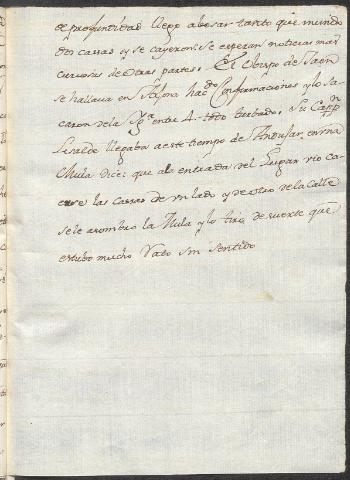 de profundidad llego a bosar tanto que inundo
dos casas y se cayeron: se esperan noticias mas
curiosas de otras partes. El Obispo de Jaen
se hallava en haz.do Confirmaciones y lo sa-
caron de la Yg.a entre 4. todo turbado, Su Capp.n
llegaba a este tiempo de Andujar, en una
Mula dice: que a la entrada del Lugar vio ca-
erse las casas de un lado y de otro de la Calle
se le asombro la Mula y lo tiró de suerte que
estubo mucho rato sin sentido